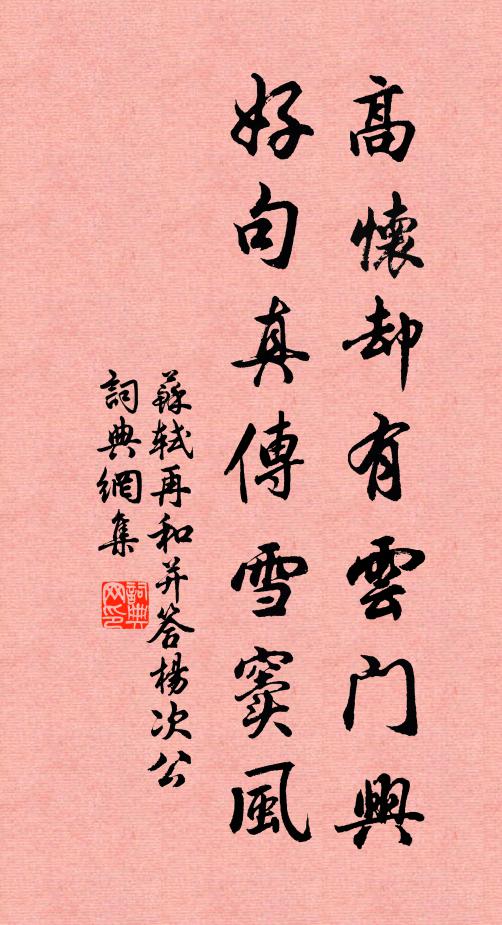 高懷却有雲门興
好句真傳雪竇風
蘇軾再和并答楊次公
詞典網集
詞典
网印